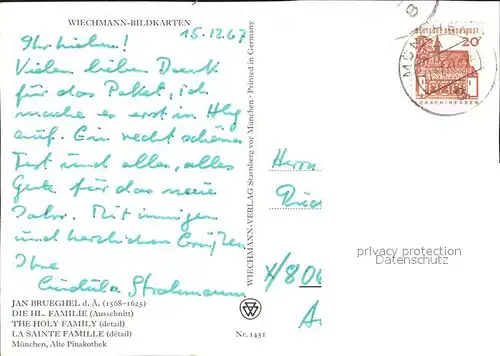 WIECHMANN-BILDKARTEN
15.12.67
Ihr Lieben!
Vielen lieben Dank
für das Paket, ich
mache es erst in Hlg
auf. Ein recht schönes
Fest und alles, alles
Gute für das neue
Jahr. Mit innigen
und herzlichen Grüßen
Ihre
JAN BRUEGHEL d. Ä. (1568–1625)
DIE HL. FAMILIE (Ausschnitt)
THE HOLY FAMILY (detail)
LA SAINTE FAMILLE (détail)
München, Alte Pinakothek
Nr. 1451
WIECHMANN-VERLAG Starnberg vor München · Printed in Germany
DEUTSCHE BUNDESPOST
20
LORSCH/HESSEN
MÜNCHEN
8
Herrn
privacy protection
watermark